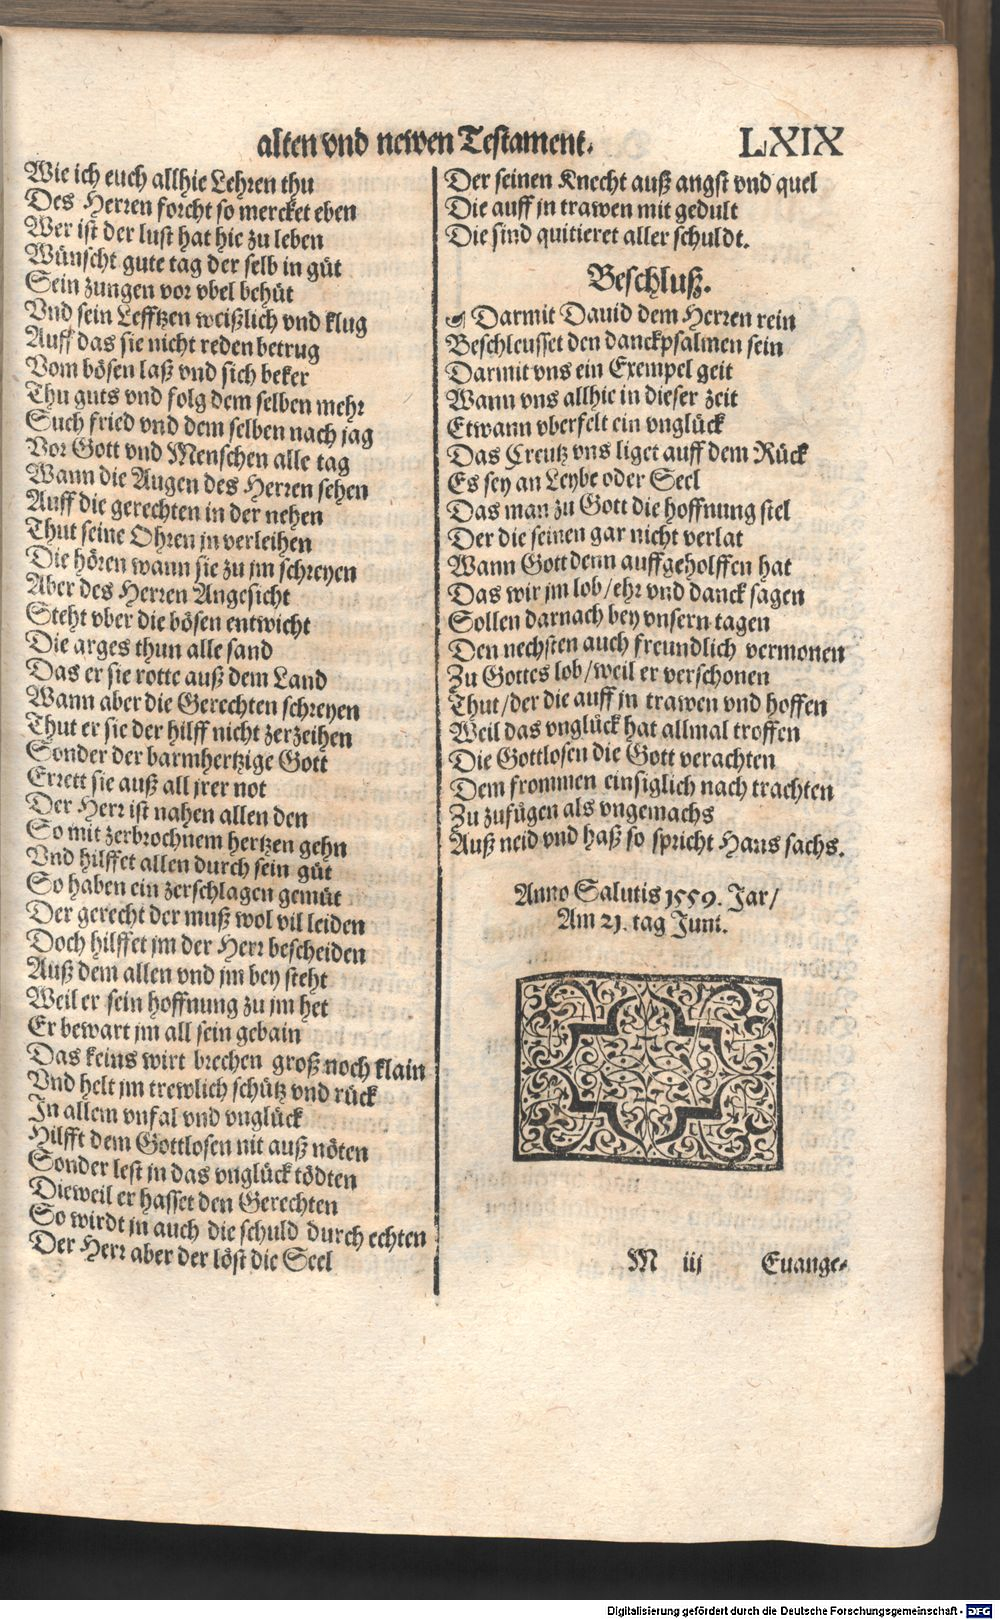 alten vnd newen Testament.
LXIX
Wie ich euch allhie Lehren thu
Des Herren forcht so mercket eben
Wer ist der lust hat hie zu leben
Wünscht gute tag der selb in güt
Sein zungen vor vbel behüt
Vnd sein Lefftzen weißlich vnd klug
Auff das sie nicht reden betrug
Vom bösen laß vnd sich beker
Thu guts vnd folg dem selben mehr
Such fried vnd dem selben nach jag
Vor Gott vnd Menschen alle tag
Wann die Augen des Herren sehen
Auff die gerechten in der nehen
Thut seine Ohren jn verleihen
Die hören wann sie zu jm schreyen
Aber des Herren Angesicht
Steht vber die bösen entwicht
Die arges thun alle sand
Das er sie rotte auß dem Land
Wann aber die Gerechten schreyen
Thut er sie der hilff nicht zerzeihen
Sonder der barmhertzige Gott
Errett sie auß all jrer not
Der Herr ist nahen allen den
So mit zerbrochnem hertzen gehn
Vnd hilffet allen durch sein güt
So haben ein zerschlagen gemüt
Der gerecht der muß wol vil leiden
Doch hilffet jm der Herr bescheiden
Auß dem allen vnd jm bey steht
Weil er sein hoffnung zu jm het
Er bewart jm all sein gebain
Das keins wirt brechen groß noch klain
Vnd helt jm trewlich schütz vnd rück
In allem vnfal vnd vnglück
Hilfft dem Gottlosen nit auß nöten
Sonder lest jn das vnglück tödten
Dieweil er hasset den Gerechten
So wirdt jn auch die schuld durch echten
Der Herr aber der löst die Seel
Der seinen Knecht auß angst vnd quel
Die auff jn trawen mit gedult
Die sind quitieret aller schuldt.
Beschluß.
☙ Darmit Dauid dem Herren rein
Beschleusset den danckpsalmen sein
Darmit vns ein Exempel geit
Wann vns allhie in dieser zeit
Etwann vberfelt ein vnglück
Das Creutz vns liget auff dem Rück
Es sey an Leybe oder Seel
Das man zu Gott die hoffnung stel
Der die seinen gar nicht verlat
Wann Gott denn auffgeholffen hat
Das wir jm lob/ehr vnd danck sagen
Sollen darnach bey vnsern tagen
Den nechsten auch freundlich vermonen
Zu Gottes lob/weil er verschonen
Thut/der die auff jn trawen vnd hoffen
Weil das vnglück hat allmal troffen
Die Gottlosen die Gott verachten
Dem frommen einsiglich nach trachten
Zu zufügen als vngemachs
Auß neid vnd haß so spricht Hans sachs.
Anno Salutis 1559. Jar/
Am 21. tag Juni.
M iij
Euange-
Digitalisierung gefördert durch die Deutsche Forschungsgemeinschaft - DFG